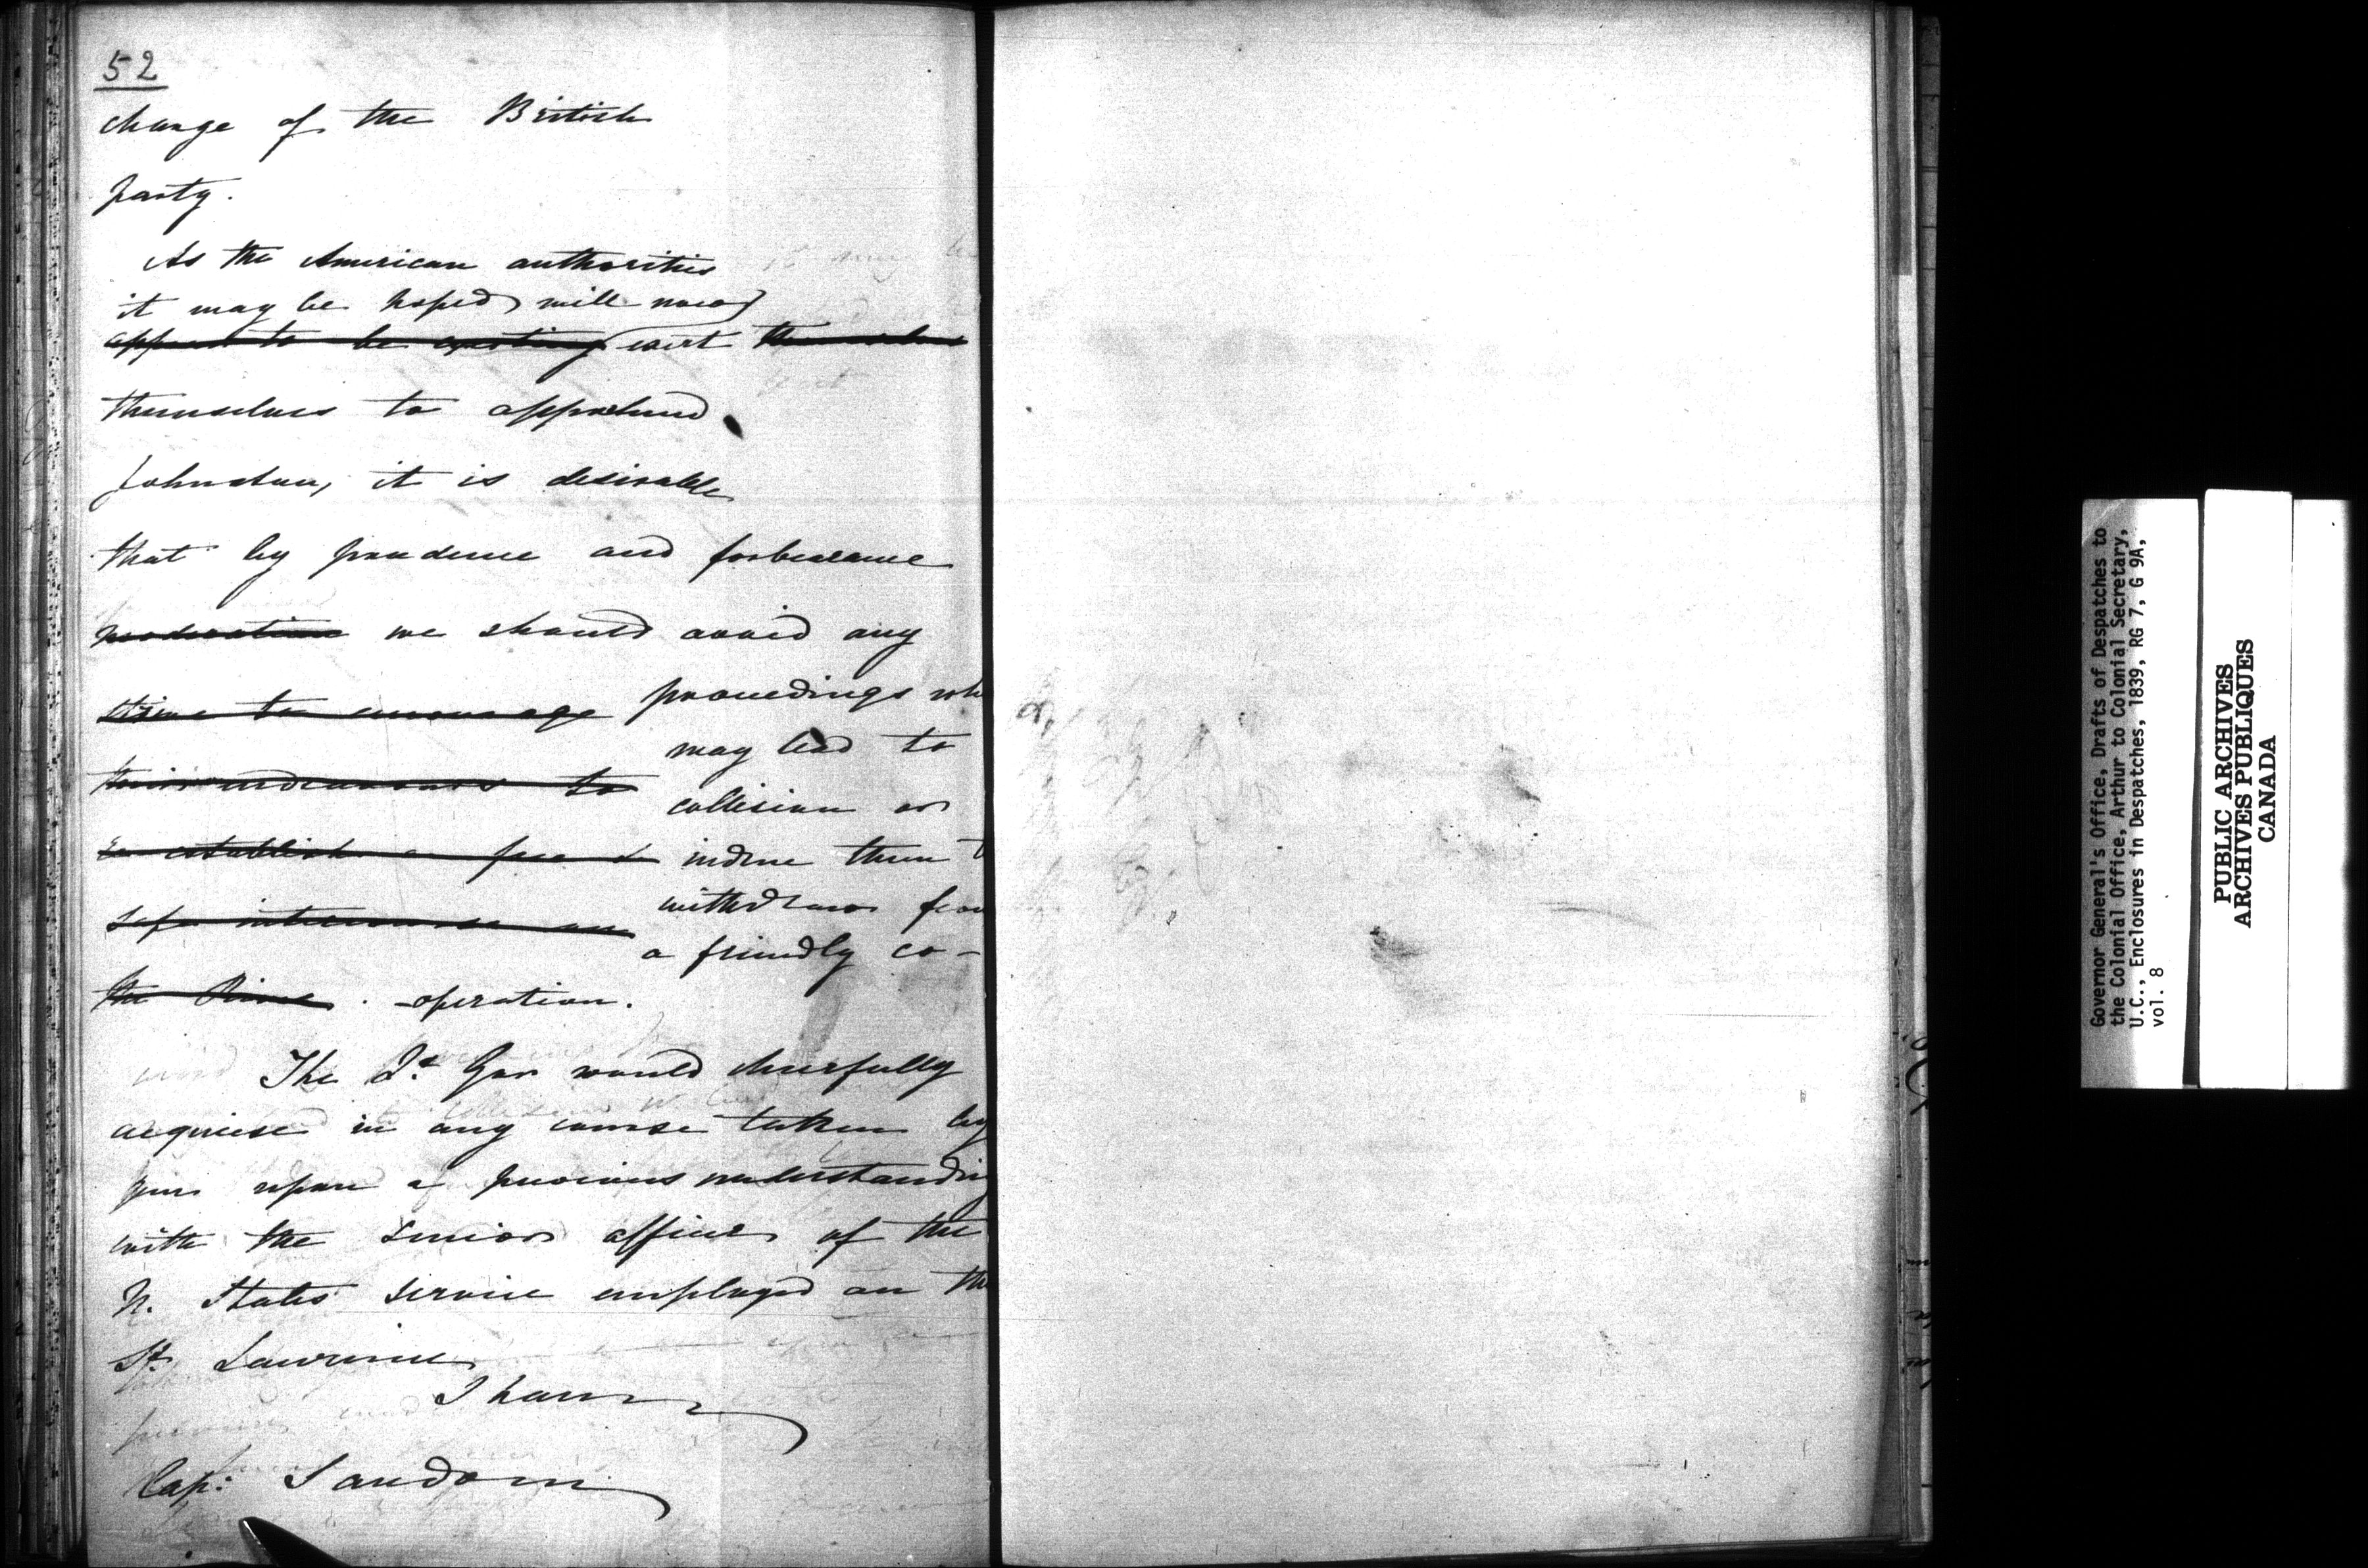 52
charge of the British
party.
As the American authorities
it may be hoped will now
appear to be exerting exert themselves
themselves to apprehend
Johnston, it is desirable
that by prudence and forbearance
moderation we should avoid any
strive to encourage proceedings wh
may lead to
their endeavours to
collision or
to establish a free & induce them t
withdraw from
safe intercourse on
a friendly co-
the River . -operation.
The Lt. Gov would cheerfully
acquiesce in any course taken by
you upon a previous understanding
with the senior officer of the
U. States service employed on the
St. Lawrence
I have
Cap: Sandom
Governor General's Office, Drafts of Despatches to
the Colonial Office, Arthur to Colonial Secretary,
U.C., Enclosures in Despatches, 1839, RG 7, G 9A,
vol. 8
PUBLIC ARCHIVES
ARCHIVES PUBLIQUES
CANADA